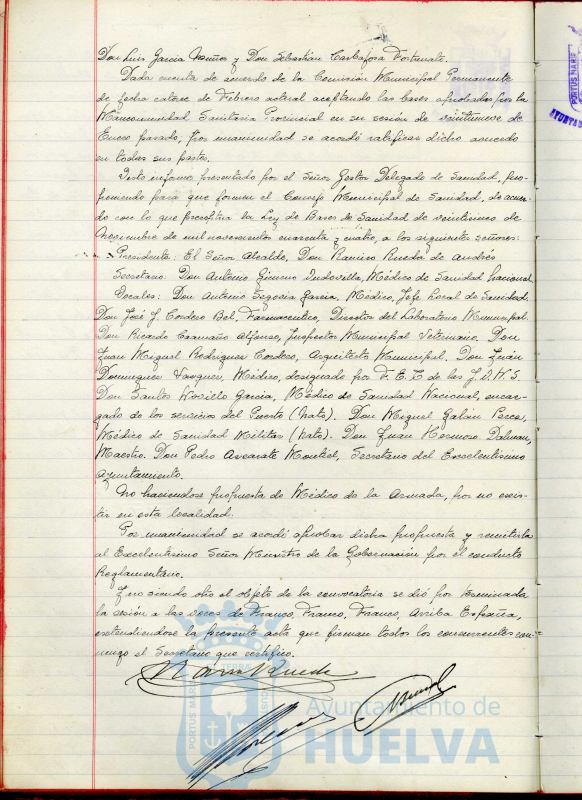 Don Luis García Muñoz y Don Sebastián Carbajosa Fortunato.
Dada cuenta de acuerdo de la Comisión Municipal Permanente
de fecha catorce de Febrero actual aceptando las bases aprobadas por la
Mancomunidad Sanitaria Provincial en su sesión de veintinueve de
Enero pasado, por unanimidad se acordó ratificar dicho acuerdo
en todas sus partes.
Visto informe presentado por el Señor Gestor Delegado de Sanidad, pro-
poniendo para que formen el Consejo Municipal de Sanidad, de acuer-
do con lo que preceptúa la Ley de Bases de Sanidad de veinticinco de
Noviembre de mil novecientos cuarenta y cuatro, a los siguientes señores:
Presidente: El Señor Alcalde, Don Ramiro Rueda de Andrés
Secretario: Don Antonio Gimeno Médico de Sanidad Nacional
Vocales: Don Antonio Segovia García, Médico, Jefe Local de Sanidad.
Don José J. Cordero Bel, Farmaceutico, Director del Laboratorio Municipal.
Don Ricardo Caamaño Alfonso, Inspector Municipal Veterinario. Don
Juan Miguel Rodríguez Cordero, Arquitecto Municipal. Don Julián
Domínguez Vazquez, Médico, designado por F. E. T. de las J. O. N. S.
Don Santos García, Médico de Sanidad Nacional, encar-
gado de los servicios del Puerto (nato). Don Miguel Galán Perez,
Médico de Sanidad Militar (nato). Don Juan Hermoso
Maestro. Don Pedro Montiel, Secretario del Excelentísimo
Ayuntamiento.
No haciendose propuesta de Médico de la Armada, por no exis-
tir en esta localidad.
Por unanimidad se acordó aprobar dicha propuesta y remitirla
al Excelentísimo Señor Ministro de la Gobernación por el conducto
Reglamentario.
Y no siendo otro el objeto de la convocatoria se dió por terminada
la sesión a las voces de Franco, Franco, Franco, Arriba España,
extendiéndose la presente acta que firman todos los concurrentes con-
migo el Secretario que certifico.
Ayuntamiento de
HUELVA
PORTUS MARIS